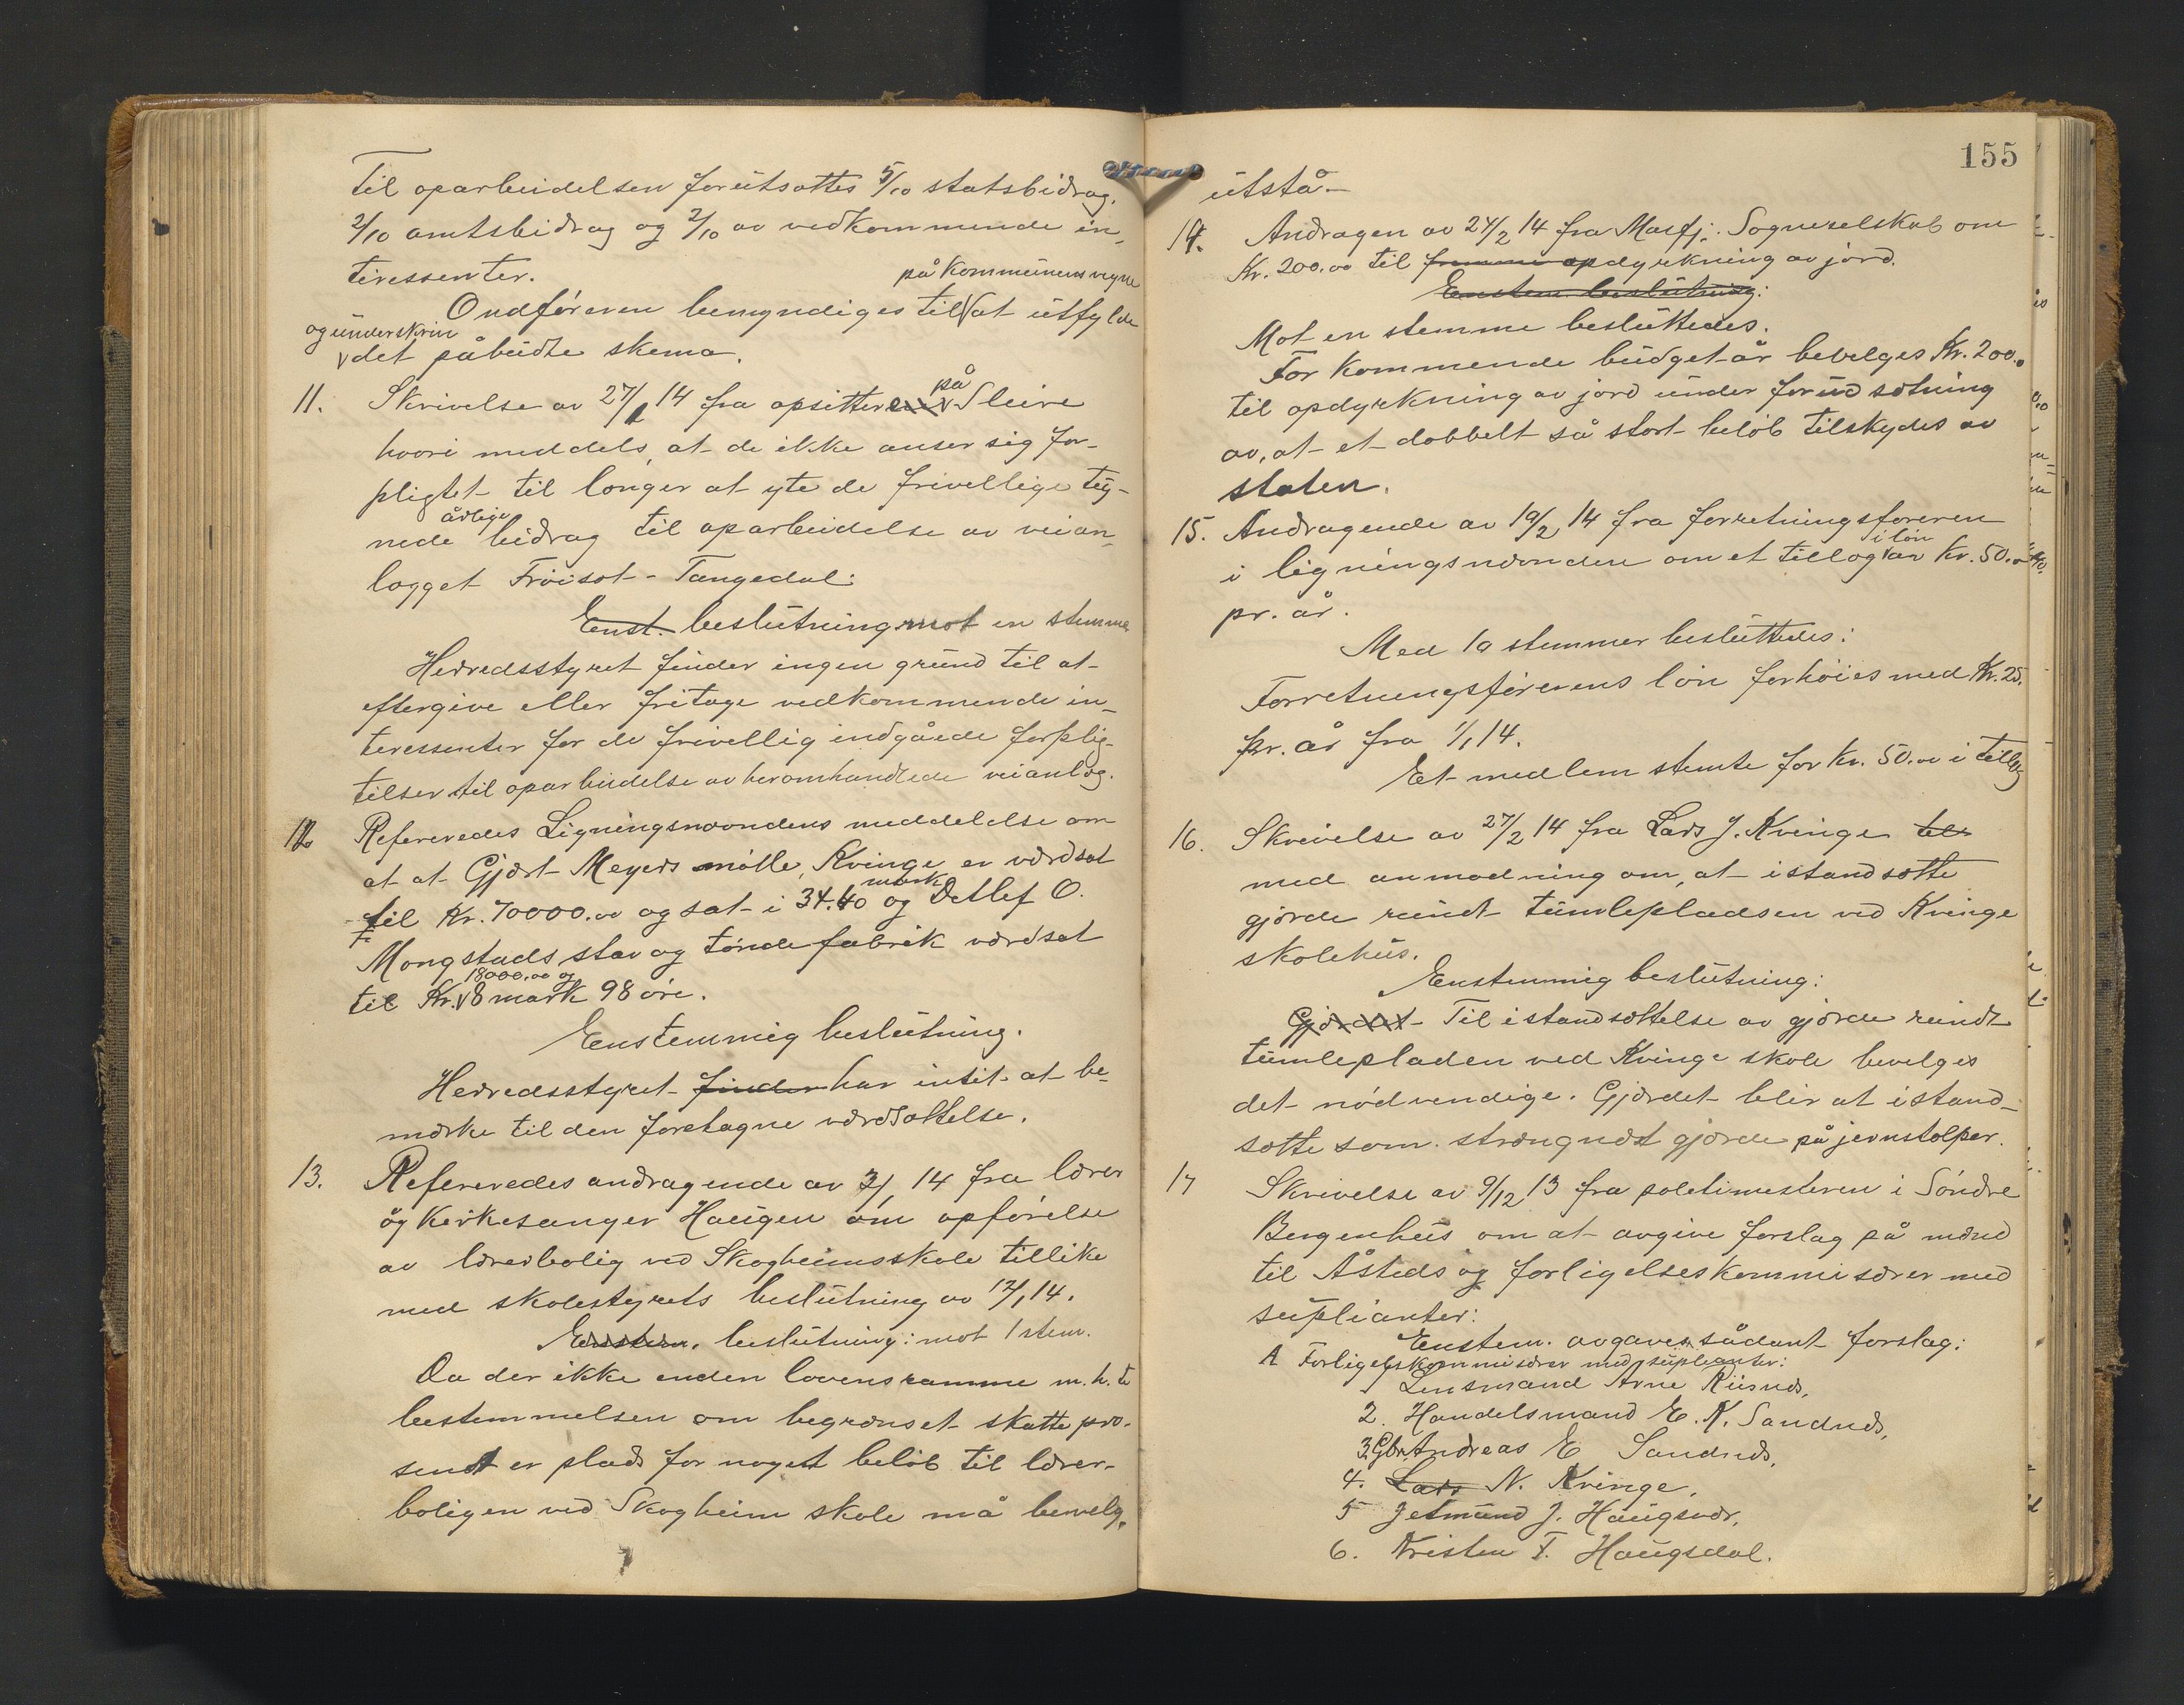 Til oparbeidelsen forutsættes 5/10 statsbidrag,
2/10 amtsbidrag og 2/10 av vedkommende in-
teressenter.
på kommunens vegne
Ordføreren bemyndiges til at utfylde
og underskrive
det påbudte skema.
11. Skrivelse av 27/1 14 fra opsittere på Sleire
hvori meddels, at de ikke anser sig for-
pligtet til længer at yte de frivellige teg-
årlige
nede bidrag til oparbeidelse av veian-
lægget Frøiset - Tangedal:
Enst. beslutning mot en stemme
Herredsstyret finder ingen grund til at
eftergive eller fritage vedkommende in-
teressenter for de frivellig indgåede forplig-
telser til oparbeidelse av heromhandlede veianlæg.
12. Refereredes Ligningsnævndens meddelelse om
at at Gjært Meyers mølle, Kvinge er værdsat
til Kr. 70000.00 og sat i 34.40 mark og Detlef O.
Mongstads stav og tøndefabrik værdsat
18000.00 og
til Kr. 8 mark 98 øre.
Enstemmig beslutning.
Herredsstyret finder har intet at be-
mærke til den foretagne værdsættelse.
13. Refereredes andragende av 3/1 14 fra lærer
og kirkesanger Haugen om opførelse
av lærerbolig ved Skogheimsskole tillike
med skolestyrets beslutning av 12/1 14.
Enstem. beslutning: mot 1 stem.
Da der ikke inden lovens ramme m.h.t.
bestemmelsen om begrænset skattepro-
sent er plads for noget beløb til lærer-
boligen ved Skogheim skole må bevelg.
155
utstå
14. Andragen av 24/2 14 fra Masfj. Sogneselskab om
Kr. 200.00 til fremme opdyrkning av jord.
Enstem. beslutning:
Mot en stemme besluttedes.
For kommende budgetår bevelges Kr. 200.0
til opdyrkning av jord under forudsætning
av, at et dobbelt så stort beløb tilskydes av
staten.
15. Andragende av 19/2 14 fra forretningsføreren
i løn
i ligningsnævnden om et tillæg av Kr. 50.00
pr. år.
Med 10 stemmer besluttedes:
Forretningsførerens løn forhøies med Kr. 25.
pr. år fra 1/1 14.
Et medlem stemte for Kr. 50.00 i tillæg
16. Skrivelse av 27/2 14 fra Lars J. Kvinge til
med anmodning om, at istandsætte
gjærde rundt tumlepladsen ved Kvinge
skolehus.
Enstemmig beslutning:
Gjærdet Til istandsættelse av gjærde rundt
tumlepladen ved Kvinge skole bevelges
det nødvendige. Gjærdet blir at istand-
sætte som strengnæt gjærde på jernstolper.
17 Skrivelse av 9/12 13 fra politimesteren i Søndre
Bergenhus om at avgive forslag på mænd
til Åsteds og forligelseskommisærer med
suplianter:
Enstem. avgaves sådant forslag:
A Forligelskommisærer med suplianter:
1 Lensmand Arne Risnes,
2. Handelsmand E. K. Sandnes,
3. Gbr. Andreas E Sandnes,
4. Lars N. Kvinge,
5 Jetmund J. Haugsvær,
6. Kristen T. Haugsdal.